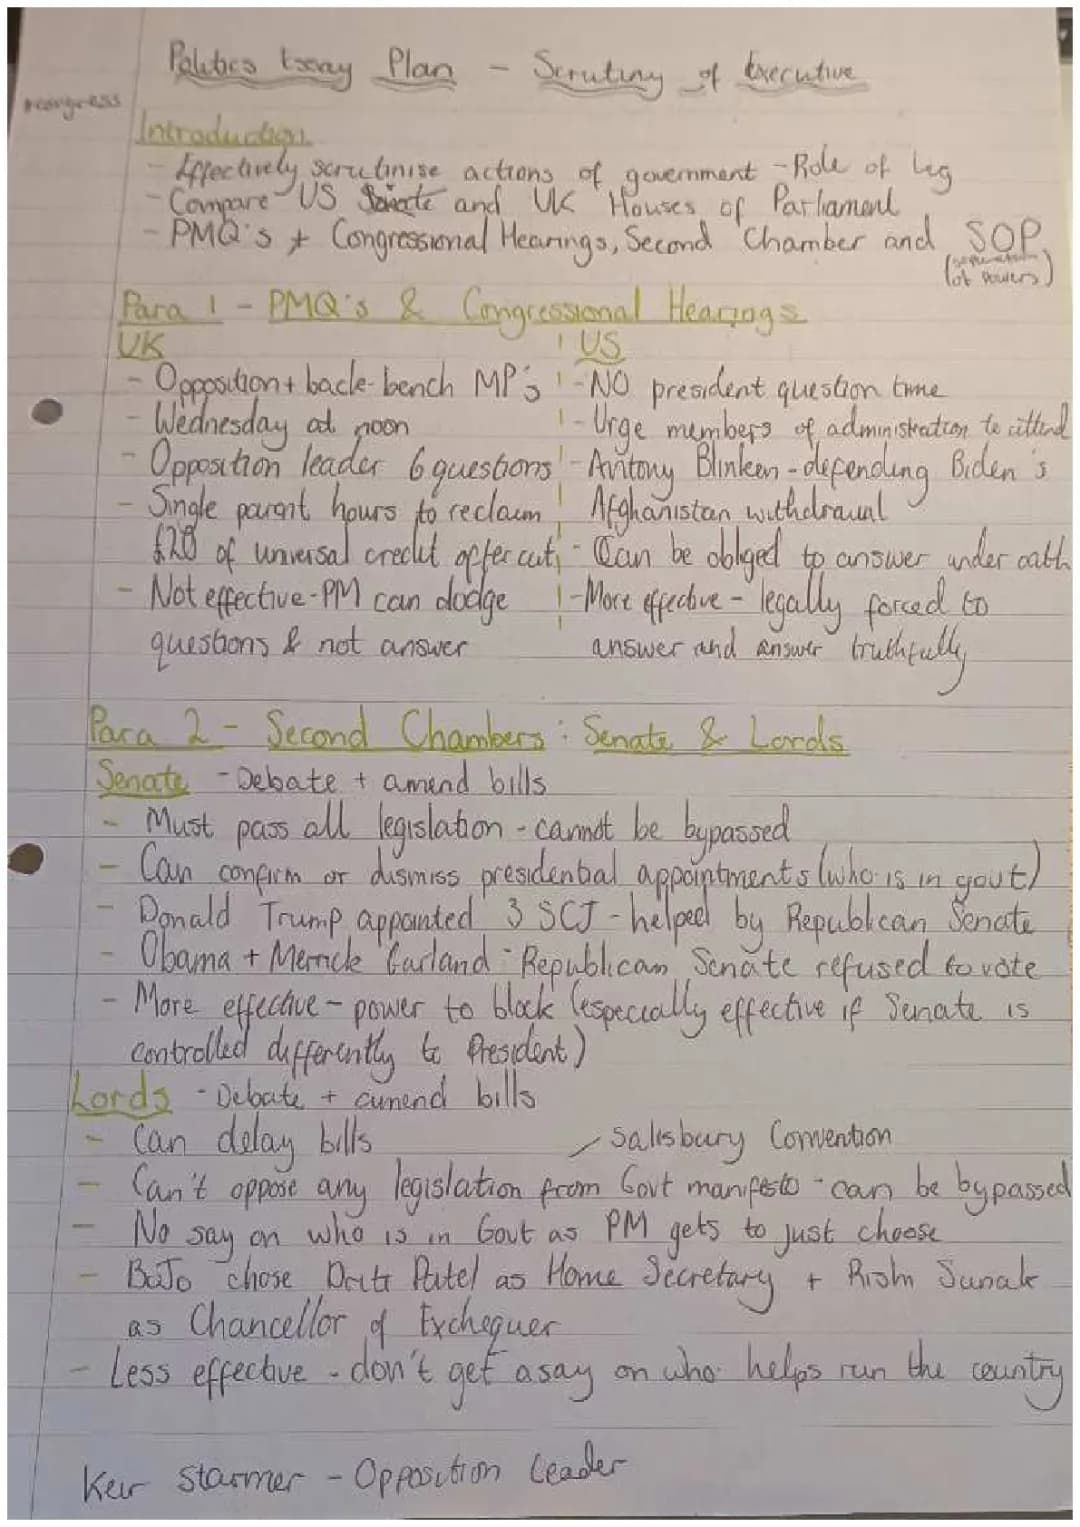 Politics Essay Plan - Scrutiny of Executive
*congress
Introduction
- Effectively scrutinise actions of government - Role of leg
- Compare US Senate and UK Houses of Parliament
- PMQ's + Congressional Hearings, Second Chamber and SOP
(separation of powers)
Para 1 - PMQ's & Congressional Hearings
UK
- Opposition + back-bench MP's
- Wednesday at noon
- Opposition leader 6 questions
- Single parent hours to reclaim
£20 of universal credit after cut
- Not effective - PM can dodge
questions & not answer
US
- NO president question time
- Urge members of administration to attend
- Antony Blinken - defending Biden's
Afghanistan withdrawal
- Can be obliged to answer under oath
- More effective - legally forced to
answer and answer truthfully
Para 2 - Second Chambers: Senate & Lords
Senate - Debate + amend bills
- Must pass all legislation - cannot be bypassed
- Can confirm or dismiss presidential appointments (who is in govt)
- Donald Trump appointed 3 SCJ - helped by Republican Senate
- Obama + Merrick Garland - Republican Senate refused to vote
- More effective - power to block (especially effective if Senate is
controlled differently to President)
Lords - Debate + amend bills
- Can delay bills
Salisbury Convention
- Can't oppose any legislation from Govt manifesto - can be bypassed
- No say on who is in Govt as PM gets to just choose
- BoJo chose Priti Patel as Home Secretary + Rishi Sunak
as Chancellor of Exchequer
- Less effective - don't get a say on who helps run the country
Keir Starmer - Opposition Leader